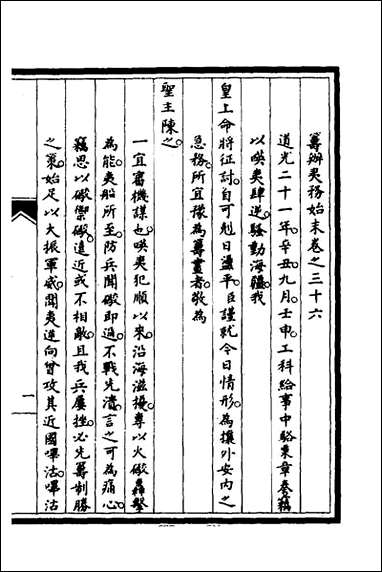 籌辦夷務始末卷之三十六
道光二十一年辛丑九月壬申工科給事中駱秉章奏竊
以㗸夷肆逆騷動海疆我
皇上命將征討自可剋日盪平臣謹就今日情形為攘外安內之
急務所宜豫為籌畫者敬為
聖主陳之
一宜審機謀也㗸夷犯順以來沿海滋擾專以火礮轟擊
為能夷船所至防兵聞礮即過不戰先潰言之可為痛心
竊思以礮禦礮遠近或不相敵且我兵屢挫必先籌制勝
之策始足以大振軍威聞夷逆向曾攻其近國嗶沽嗶沽
一